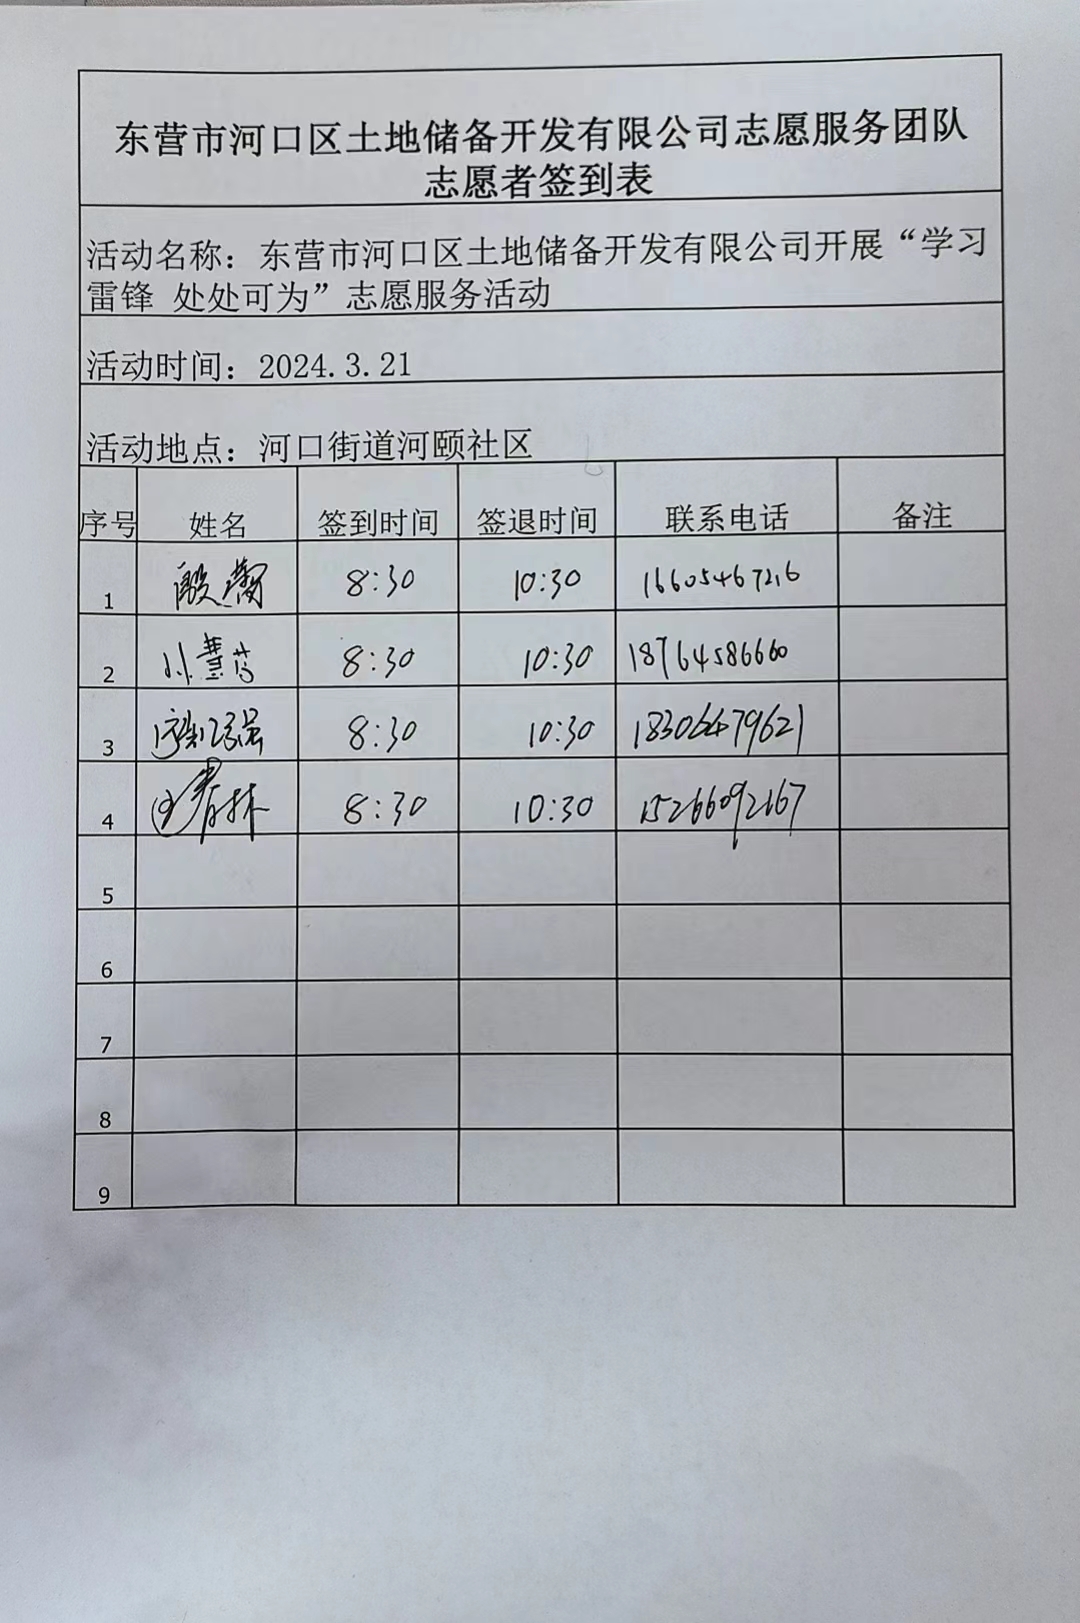 东营市河口区土地储备开发有限公司志愿服务团队
志愿者签到表
活动名称：东营市河口区土地储备开发有限公司开展“学习
雷锋 处处可为”志愿服务活动
活动时间：2024.3.21
活动地点：河口街道河颐社区
序号 姓名 签到时间 签退时间 联系电话 备注
1 8:30 10:30
2 8:30 10:30 18764586660
3 8:30 10:30 18306479621
4 8:30 10:30 15266092167
5
6
7
8
9